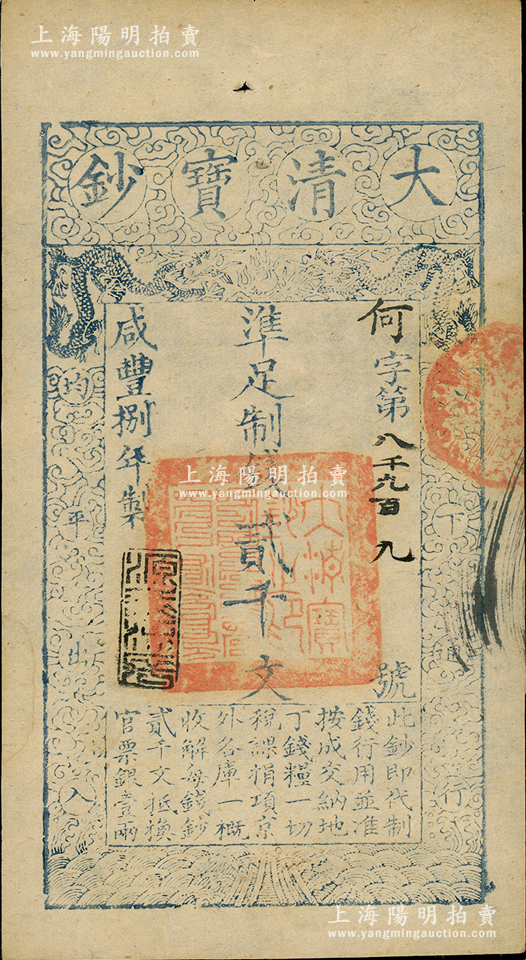 上海陽明拍賣
www.yangmingauction.com
大清寶鈔
何字第八千九百九號
準足制錢貳千文
咸豐捌年製
天下通行
均平出入
此鈔即代制
錢行用並准
按成交納地
丁錢糧一切
稅課捐項京
外各庫一概
收解每錢鈔
貳千文抵換
官票銀壹兩
上海陽明拍賣
www.yangmingauction.com
上海陽明拍賣
www.yangmingauction.com